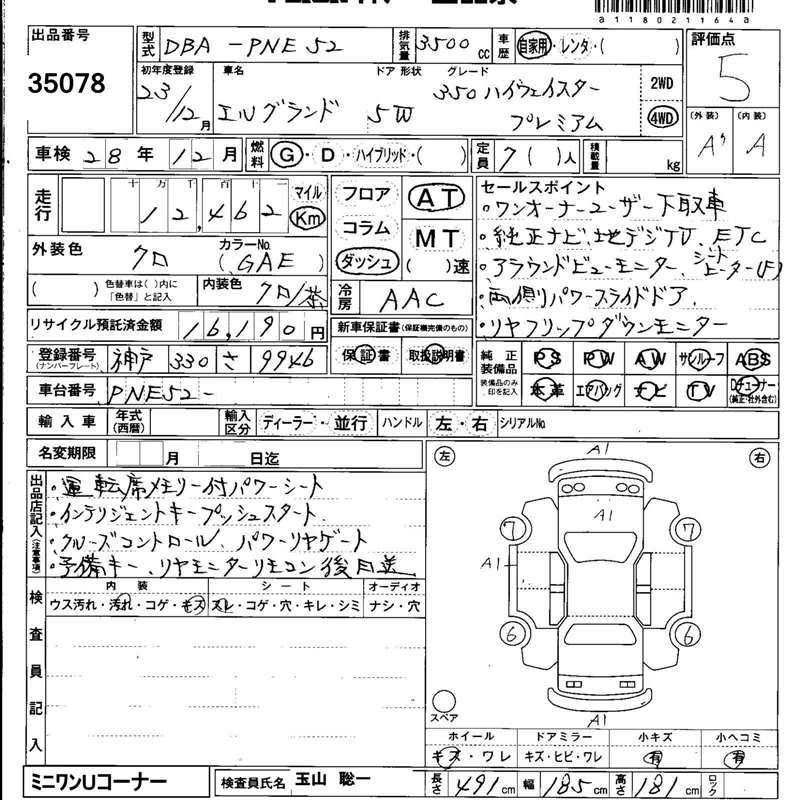 a118021164a
出品番号 型式 DBA - PNE52 排気量 3500 cc 車歴 自家用・レンタ・( ) 評価点
35078 5
初年度登録 車名 ドア 形状 グレード
23/12月 エルグランド 5W 350ハイウェイスター 2WD
プレミアム 4WD
(外装) (内装)
A' A
車検 28年 12月 燃料 G・D・ハイブリッド・( ) 定員 7( )人 積載量 kg
走行 十万千百十一 マイル
12,462 Km
フロア AT
コラム MT
ダッシュ ( )速
セールスポイント
・ワンオーナーユーザー下取車
・純正ナビ、地デジTV、ETC
・アラウンドビューモニター、シートヒーター(F)
・両側パワースライドドア
・リヤフリップダウンモニター
外装色 クロ カラーNo. (GAE)
( ) 色替車は( )内に「色替」と記入 内装色 クロ/茶 冷房 AAC
リサイクル預託済金額 16,190円 新車保証書(保証継続完備のもの)
登録番号 (ナンバープレート) 神戸 330 さ 9946 保証書 取扱説明書
純正装備品 PS PW AW サンルーフ ABS
装備品のみ印を記入 本革 エアバッグ ナビ TV Dチューナー(純正・社外含む)
車台番号 PNE52-
輸入車 年式(西暦) 輸入区分 ディーラー・並行 ハンドル 左・右 シリアルNo.
名変期限 月 日迄
出品店記入(注意事項)
・運転席メモリー付パワーシート
・インテリジェントキープッシュスタート
・クルーズコントロール、パワーリヤゲート
・予備キー、リヤモニターリモコン後日送
左 A1 右
A1
7 7
A1
6 6
A1
スペア
検査員記入
内装 シート オーディオ
ウス汚れ・汚れ・コゲ・キズ スレ・コゲ・穴・キレ・シミ ナシ・穴
ホイール ドアミラー 小キズ 小ヘコミ
キズ・ワレ キズ・ヒビ・ワレ 有 有
ミニワンUコーナー 検査員氏名 玉山 聡一 長さ 491cm 幅 185cm 高さ 181cm ロック